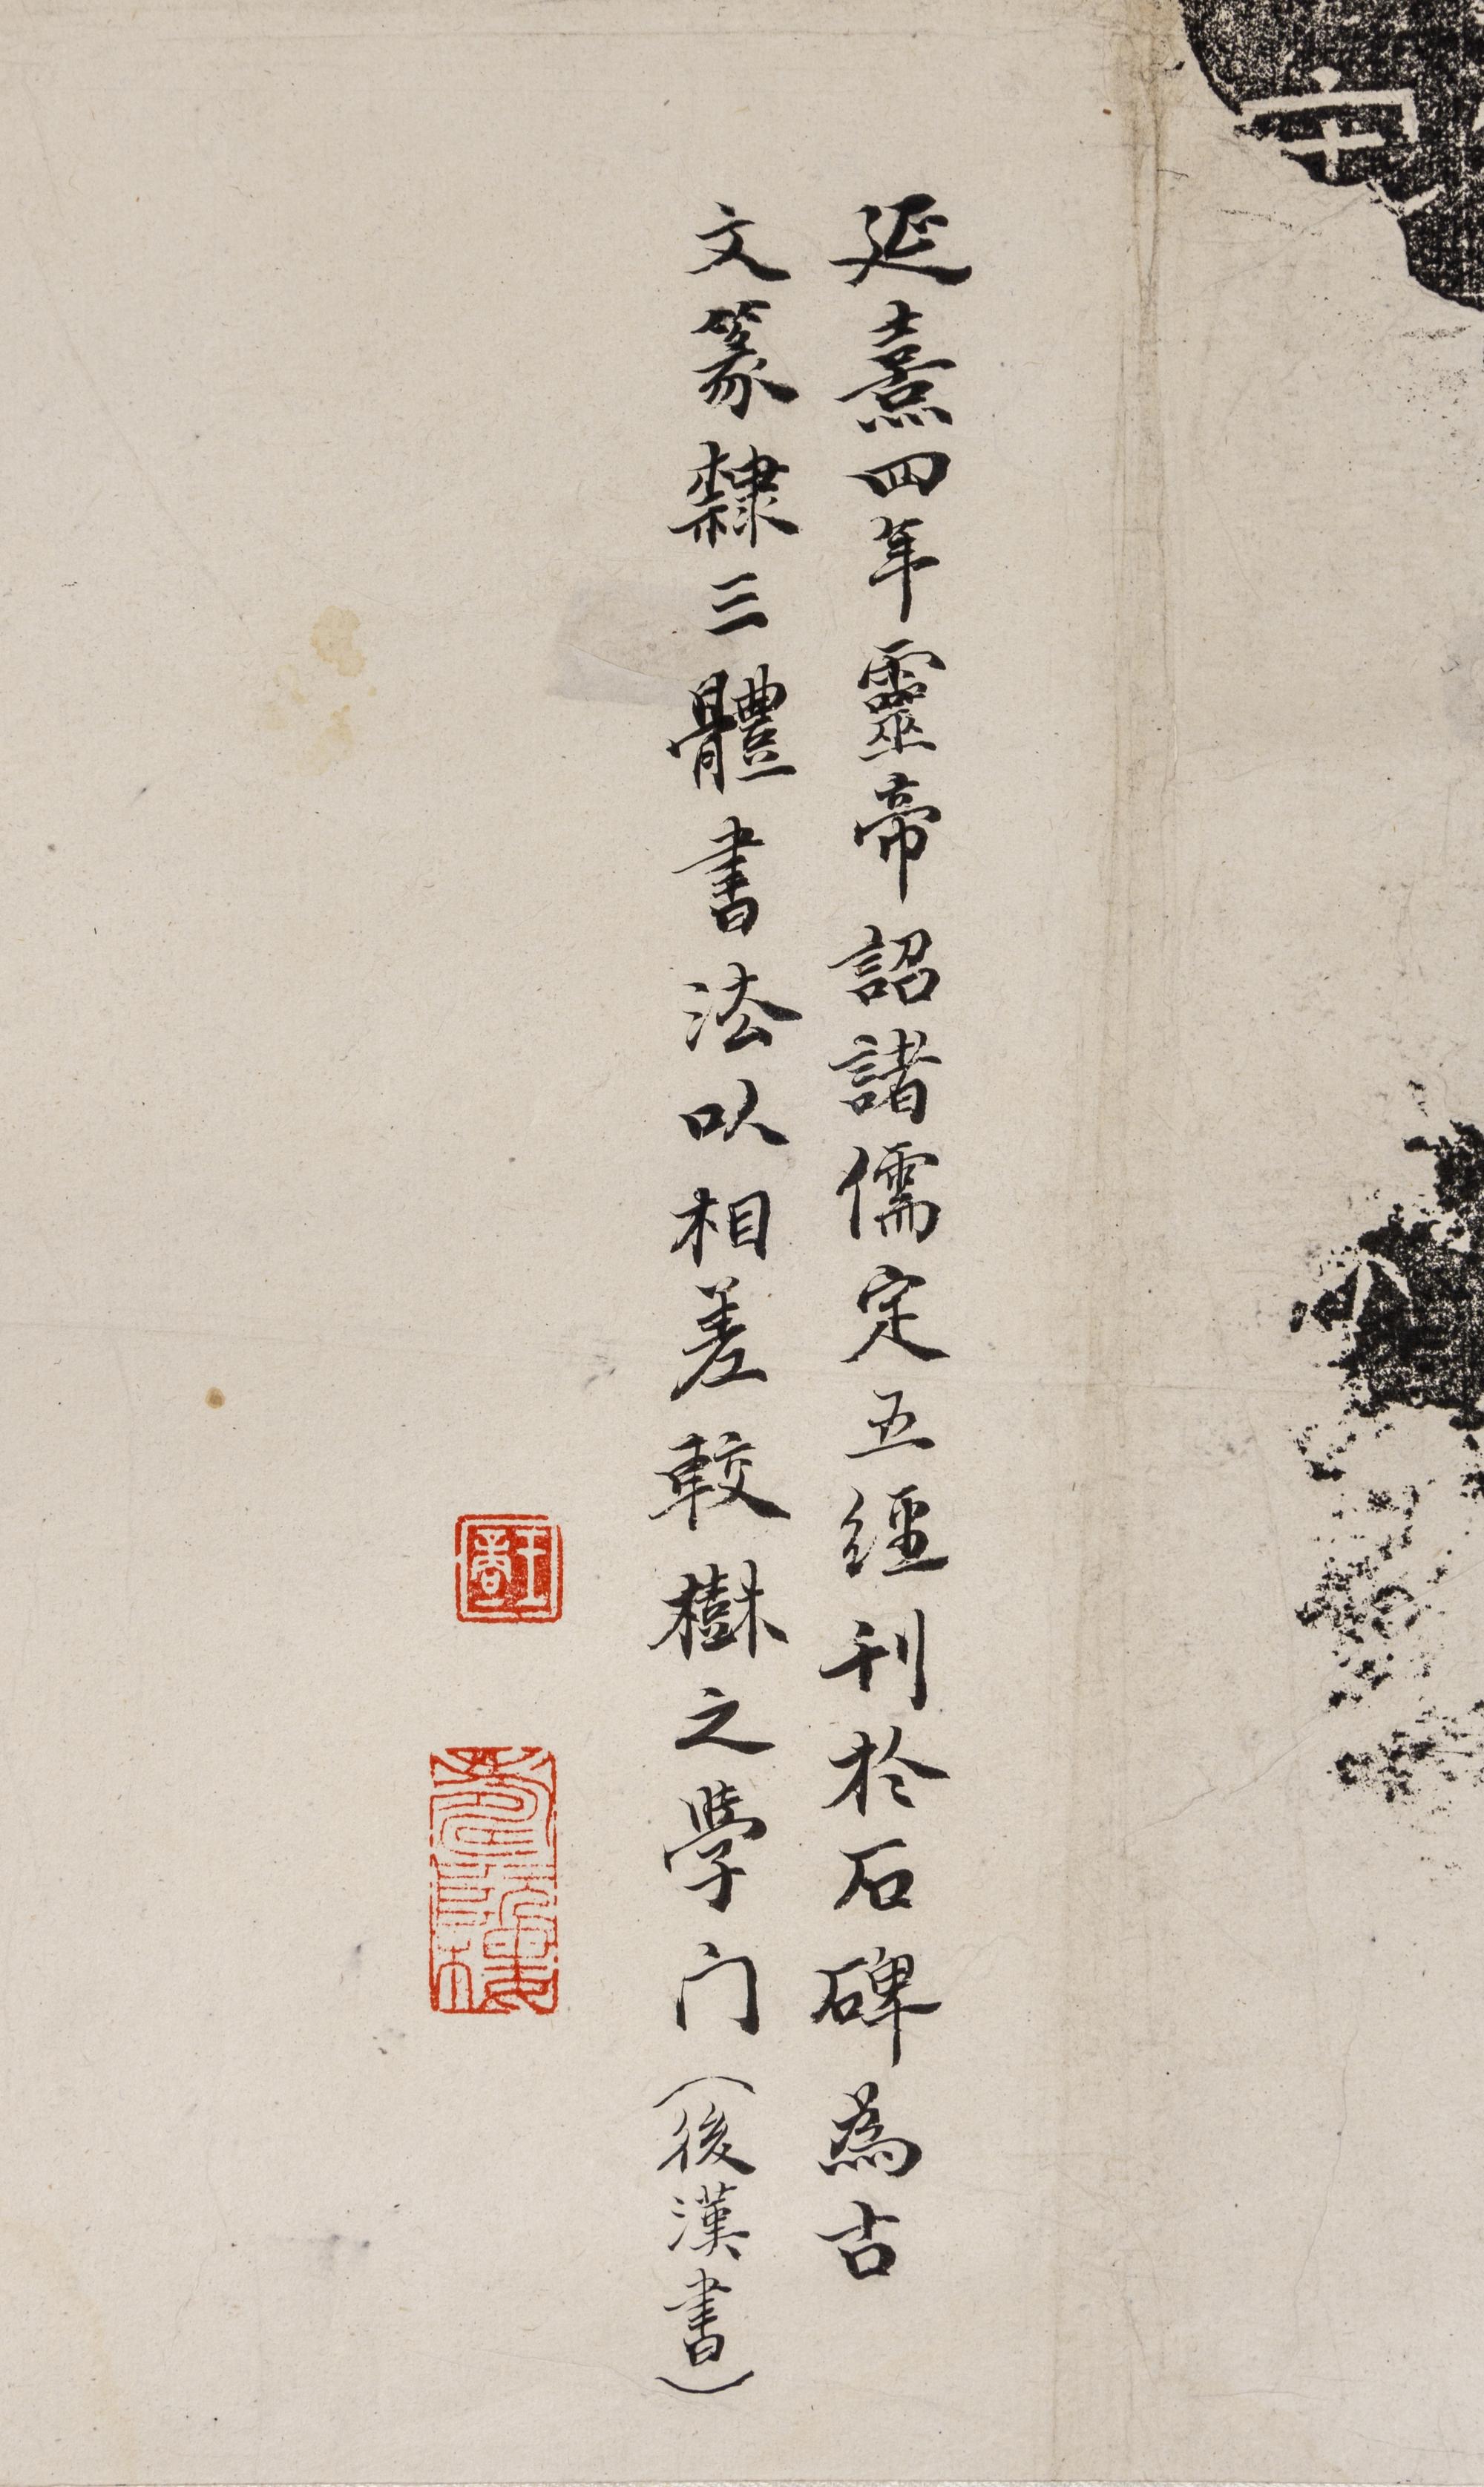 延熹四年靈帝詔諸儒定五經刊於石碑為古
文篆隸三體書法以相差較樹之學门（後漢書）